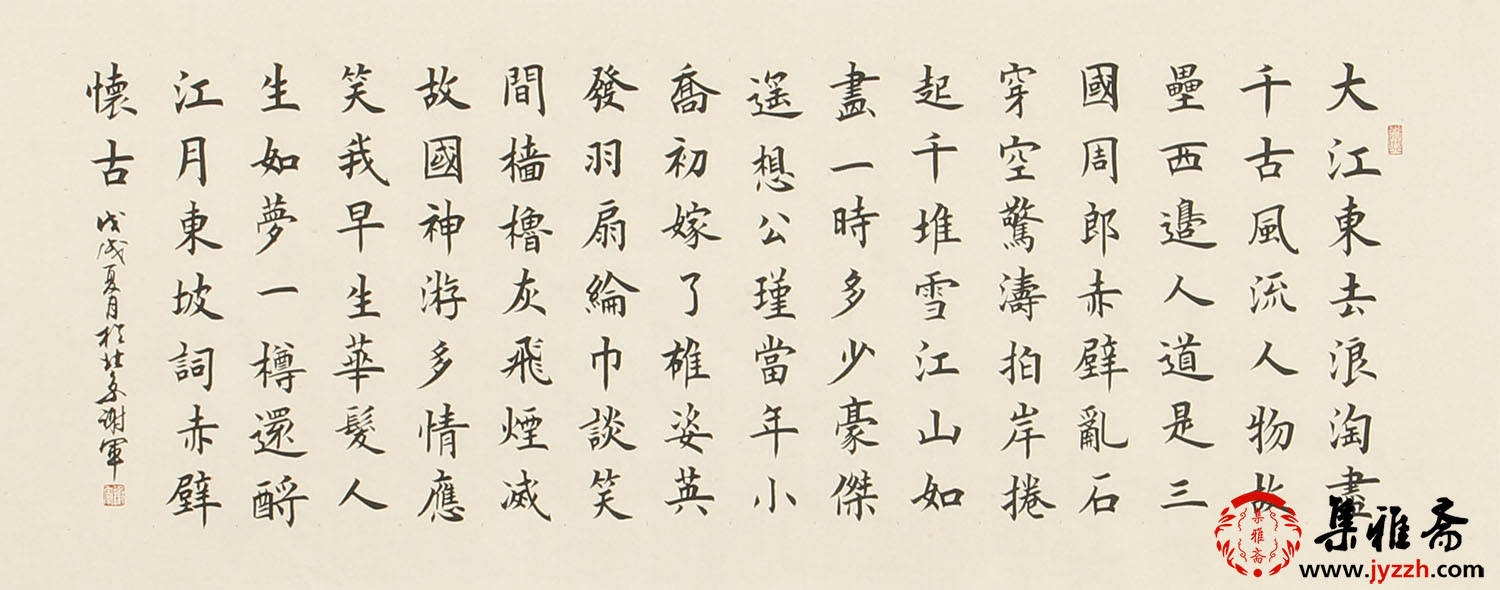 大江東去浪淘盡
千古風流人物故
壘西邊人道是三
國周郎赤壁亂石
穿空驚濤拍岸捲
起千堆雪江山如
畫一時多少豪傑
遥想公瑾當年小
喬初嫁了雄姿英
發羽扇綸巾談笑
間檣櫓灰飛煙滅
故國神游多情應
笑我早生華髮人
生如夢一樽還酹
江月東坡詞赤壁
懷古
戊戌夏月於北京謝軍
集雅斋
集雅斋
www.jyzzh.com